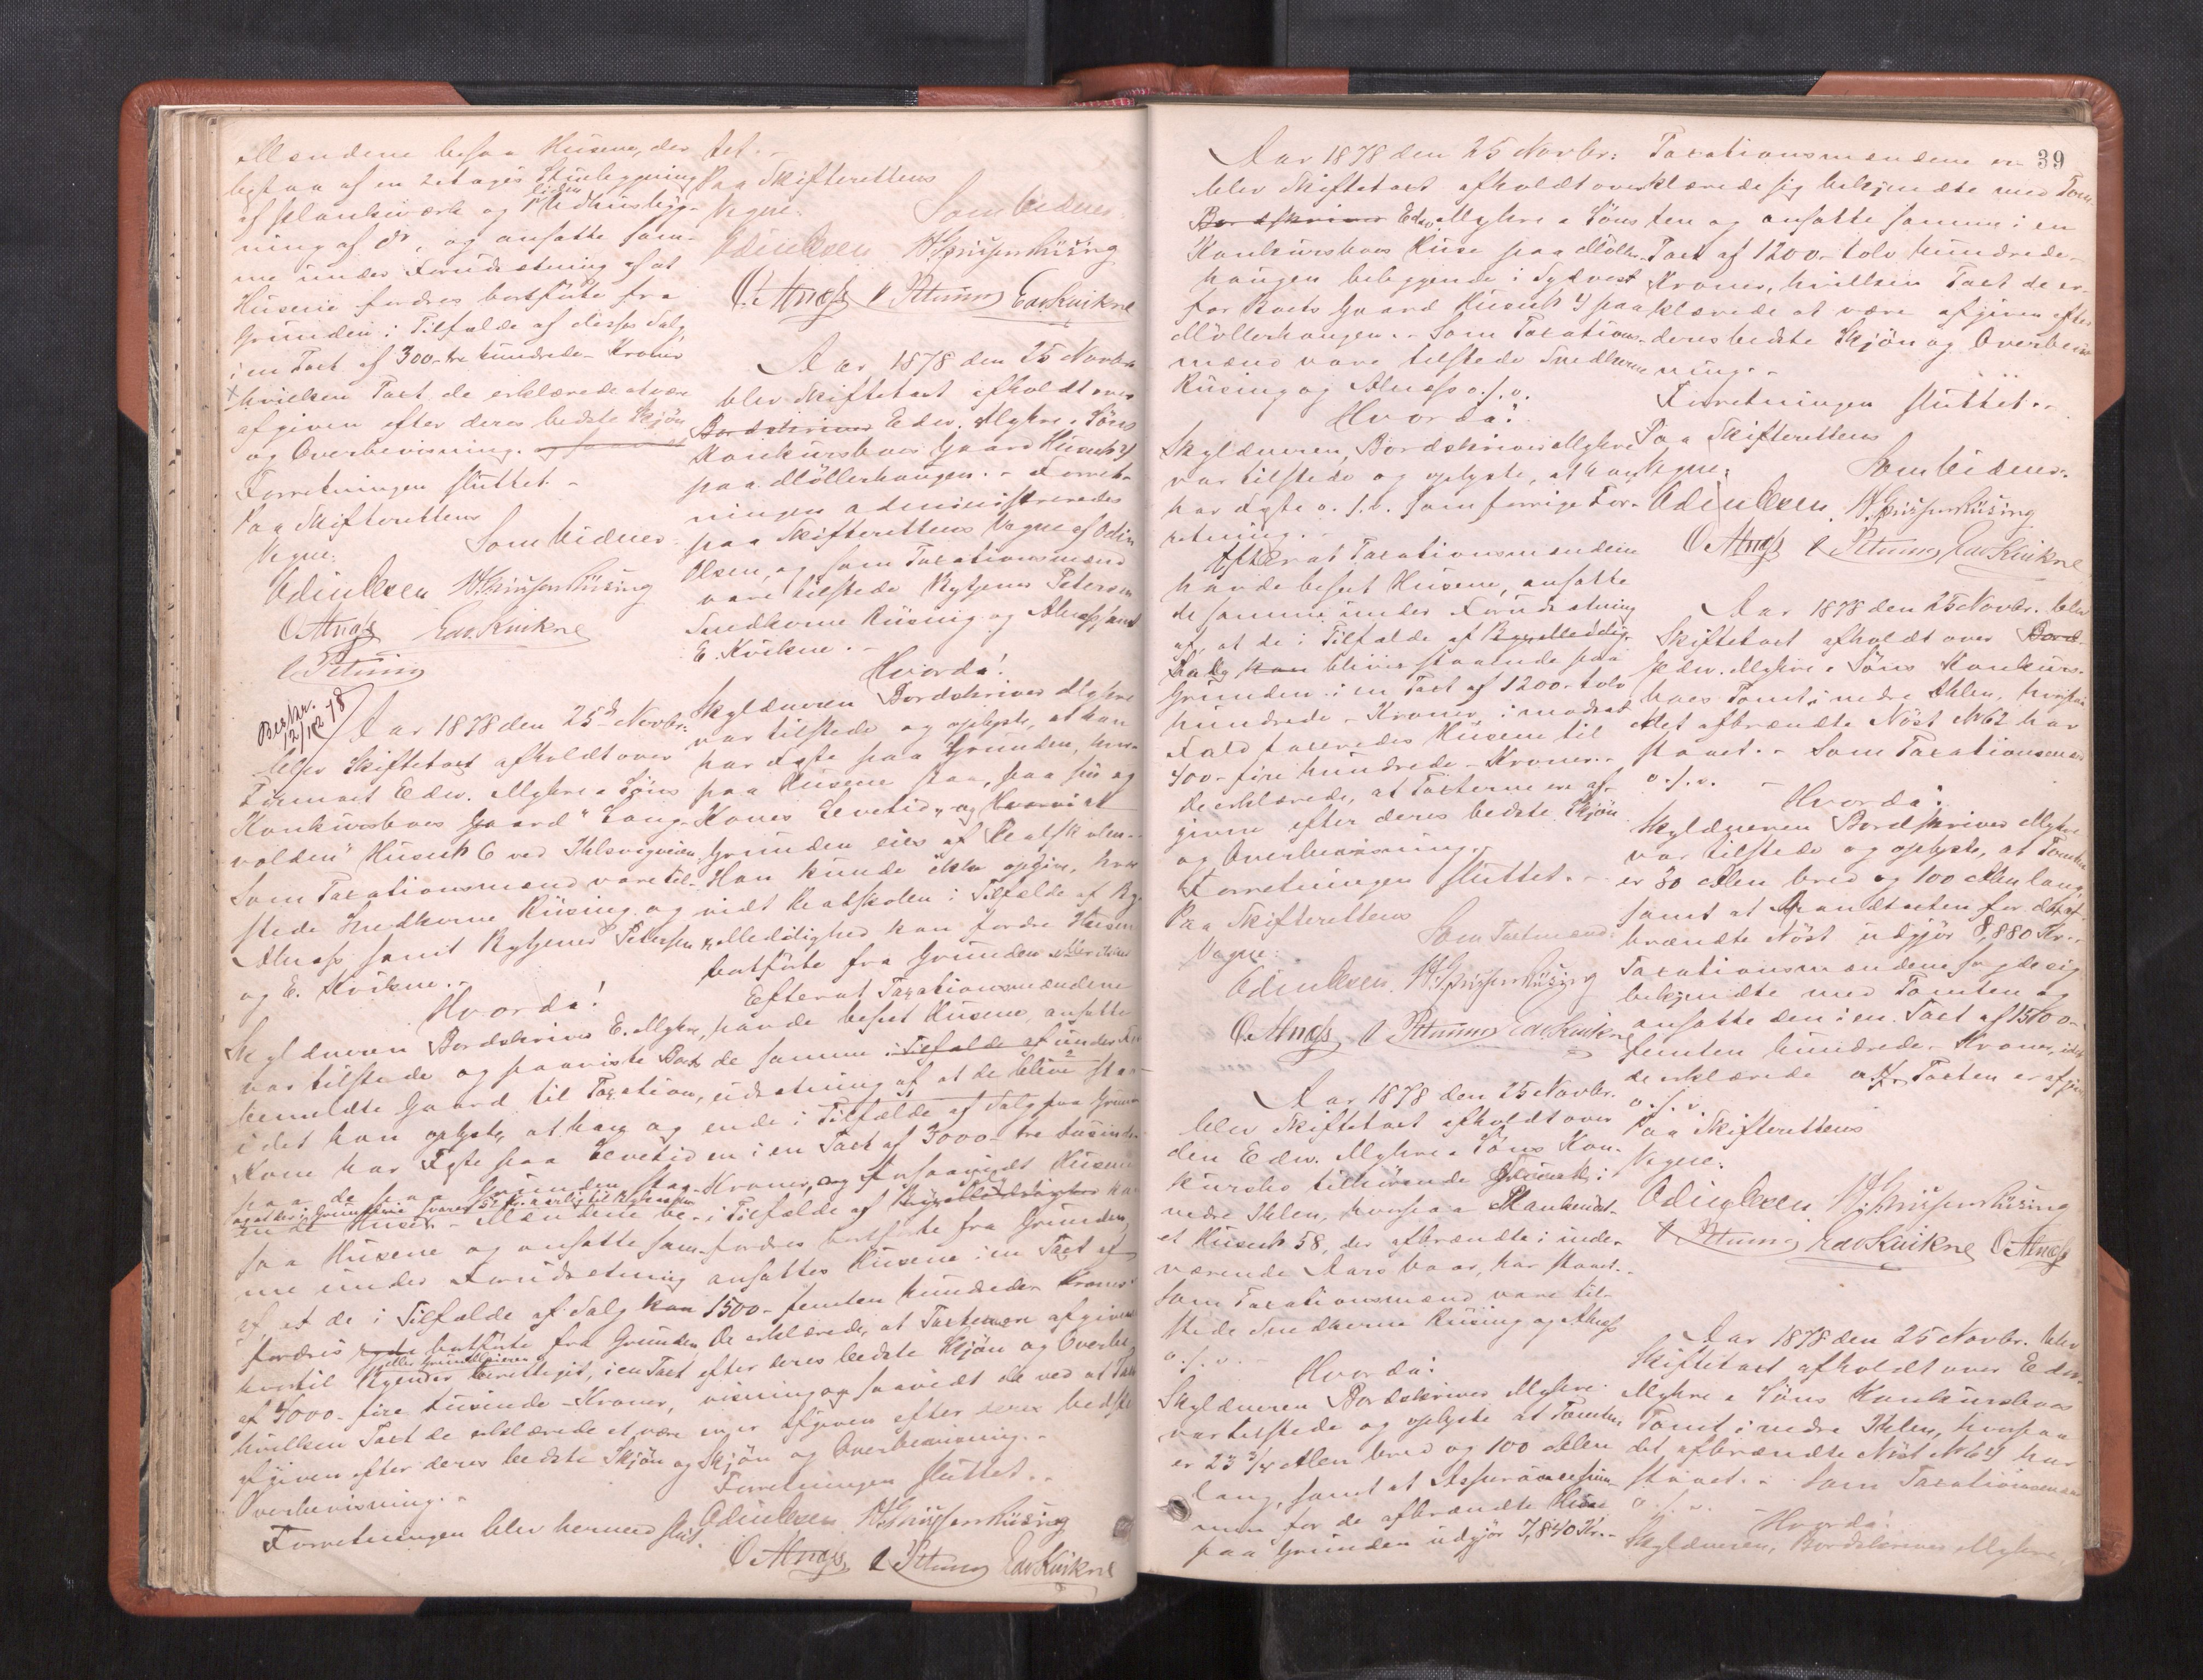 Mændene besaa Husene, der
bestaa af en 2 etages Stuebygning
af Plankeværk og 1 liden Udhusbyg-
ning af do, og ansatte sam-
me under Forudsætning af at
Husene fordres bortførte fra
Grunden i Tilfælde af disses Salg,
i en Taxt af 300 - tre hundrede - Kroner
hvilken Taxt de erklærede at være
afgiven efter deres bedste Skjøn
og Overbevisning.
Forretningen sluttet. -
Paa Skifterettens
Vegne:
Som Vidner
Odin Olsen H. Rüsing
O. Alnæss Edv. Kvikne
Petersen
Beskr.
2/12 78
Aar 1878 den 25de Novbr:
blev Skiftetaxt afholdt over
Firmaet Edw. Myhre & Söns
Konkursboes Gaard "Lang-
volden" Husn 6 ved Ihlsvigveien
Som Taxationsmænd vare til-
stede Snedkerne Rüsing og
Alnæss samt Rygjener Petersen
og E. Kvikne. -
Hvorda!
Skyldneren Bordskriver E. Myhre,
var tilstede og paaviste Boets
bemeldte Gaard til Taxation,
idet han oplyste, at han og
Kone har Fæste paa Levetid
paa de paa Grunden staa-
ende Huse. - Mændene be-
saa Husene og ansatte sam-
me under Forudsætning
af, at de i Tilfælde af Salg kan
fordres bortførte fra Grunden
eller Grundeieren
hvortil Byen er berettiget, i en Taxt
af 4000 - fire tusinde - Kroner,
hvilken Taxt de erklærede at være
afgiven efter deres bedste Skjøn og
Overbevisning. -
Forretningen blev hermed slut-
tet. -
Paa Skifterettens
Vegne:
Som Vidner:
Odin Olsen H. Rüsing
O. Alnæss Petersen Edv. Kvikne
Aar 1878 den 25 Novbr.
blev Skiftetaxt afholdt over
Bordskriver Edw. Myhre & Söns
Konkursboes Gaard Husn 4
paa Møllerhaugen. - Forret-
ningen administreredes
paa Skifterettens Vegne af Odin
Olsen, og som Taxationsmænd
vare tilstede Rygjener Petersen
Snedkerne Rüsing og Alnæss samt
E. Kvikne. -
Hvorda!
Skyldneren Bordskriver Myhre
var tilstede og oplyste, at han
har Fæste paa Grunden, hvor-
paa Husene staa, paa sin og
Kones Levetid, og
Grunden eies af Realskolen. -
Han kunde ikke opgive, hvor-
vidt Realskolen i Tilfælde af
kan fordre Husene
bortførte fra Grunden
Efterat Taxationsmændene
havde beseet Husene, ansatte
de samme i Tilfælde af under For-
udsætning af, at de blive staa-
ende i Tilfælde af Salg paa Grun-
den i en Taxt af 3000 - tre tusinde
Kroner, og forsaavidt Husene
i Tilfælde af kan
fordres bortførte fra Grunden,
ansattes Husene i en Taxt af
1500 - femten hundrede - Kroner.
De erklærede, at Taxterne ere afgivne
efter deres bedste Skjøn og Overbe-
visning
Skjøn og Overbevisning. -
Forretningen sluttet. -
Odin Olsen H. Rüsing
O. Alnæss Petersen Edv. Kvikne
39
Aar 1878 den 25 Novbr:
blev Skiftetaxt afholdt over
Bordskriver Edw. Myhre & Söns
Konkursboes Huse paa Møller-
haugen beliggende i Sydvest
for Boets Gaard Husn 4 paa
Møllerhaugen. - Som Taxations-
mænd vare tilstede Snedkerne
Rüsing og Alnæss o. s. v.
Hvorda!
Skyldneren, Bordskriver Myhre
var tilstede og oplyste, at han
har Fæste o. s. v. som forrige For-
retning. -
Efterat Taxationsmændene
havde beseet Husene, ansatte
de samme under Forudsætning
af, at de i Tilfælde af
Salg kan blive staaende paa
Grunden i en Taxt af 1200 - tolv
hundrede - Kroner, i modsat
Fald taxeredes Husene til
400 - fire hundrede - Kroner. -
De erklærede, at Taxterne ere af-
givne efter deres bedste Skjøn
og Overbevisning. -
Forretningen sluttet. -
Paa Skifterettens
Vegne:
Som Taxtmænd:
Odin Olsen. H. Rüsing
O. Alnæss Petersen Edv. Kvikne
Aar 1878 den 25 Novbr.
blev Skiftetaxt afholdt over
den Edw. Myhre & Söns Kon-
kursbo tilhörende Grund i
nedre Ihlen, hvorpaa
et Husn 58, der afbrændte i inde-
værende Aars Vaar, har staaet. -
Som Taxationsmænd vare til-
stede Snedkerne Rüsing og Alnæss
o. s. v. -
Hvorda!
Skyldneren Bordskriver Myhre
var tilstede og oplyste at Tomten
er 23 3/4 Alen bred og 100 Alen
lang, samt at Assurancesum-
men for de afbrændte Huse
paa Grunden udgjør 7,840 Kr. -
Taxationsmændene er-
klærede sig bekjendte med Tom-
ten og ansatte samme i en
Taxt af 1200 - tolv hundrede -
Kroner, hvilken Taxt de er-
klærede at være afgiven efter
deres bedste Skjøn og Overbevis-
ning. -
Forretningen sluttet. -
Paa Skifterettens
Vegne:
Som Vidner:
Odin Olsen. H. Rüsing
O. Alnæss Petersen Edv. Kvikne
Aar 1878 den 25 Novbr. blev
Skiftetaxt afholdt over Bord-
Edw. Myhre & Söns Konkurs-
boes Tomt i nedre Ihlen, hvorpaa
det afbrændte Nöst No 62 har
staaet. - Som Taxationsmænd
o. s. v. -
Hvorda!
Skyldneren Bordskriver Myhre
var tilstede og oplyste, at Tomten
er 30 Alen bred og 100 Alen lang,
samt at Brandtaxten for det af-
brændte Nöst udgjør 8,880 Kr. -
Taxationsmændene sagde sig
bekjendte med Tomten og
ansatte den i en Taxt af 1500 -
femten hundrede - Kroner, idet
de erklærede at Taxten er afgiven
o. s. v.
Paa Skifterettens
Vegne:
Odin Olsen H. Rüsing
Petersen Edv. Kvikne O. Alnæss
Aar 1878 den 25 Novbr. blev
Skiftetaxt afholdt over Edw.
Myhre & Söns Konkursboes
Tomt i nedre Ihlen, hvorpaa
det afbrændte Nöst No 64 har
staaet. - Som Taxationsmænd
o. s. v.
Hvorda!
Skyldneren, Bordskriver Myhre,